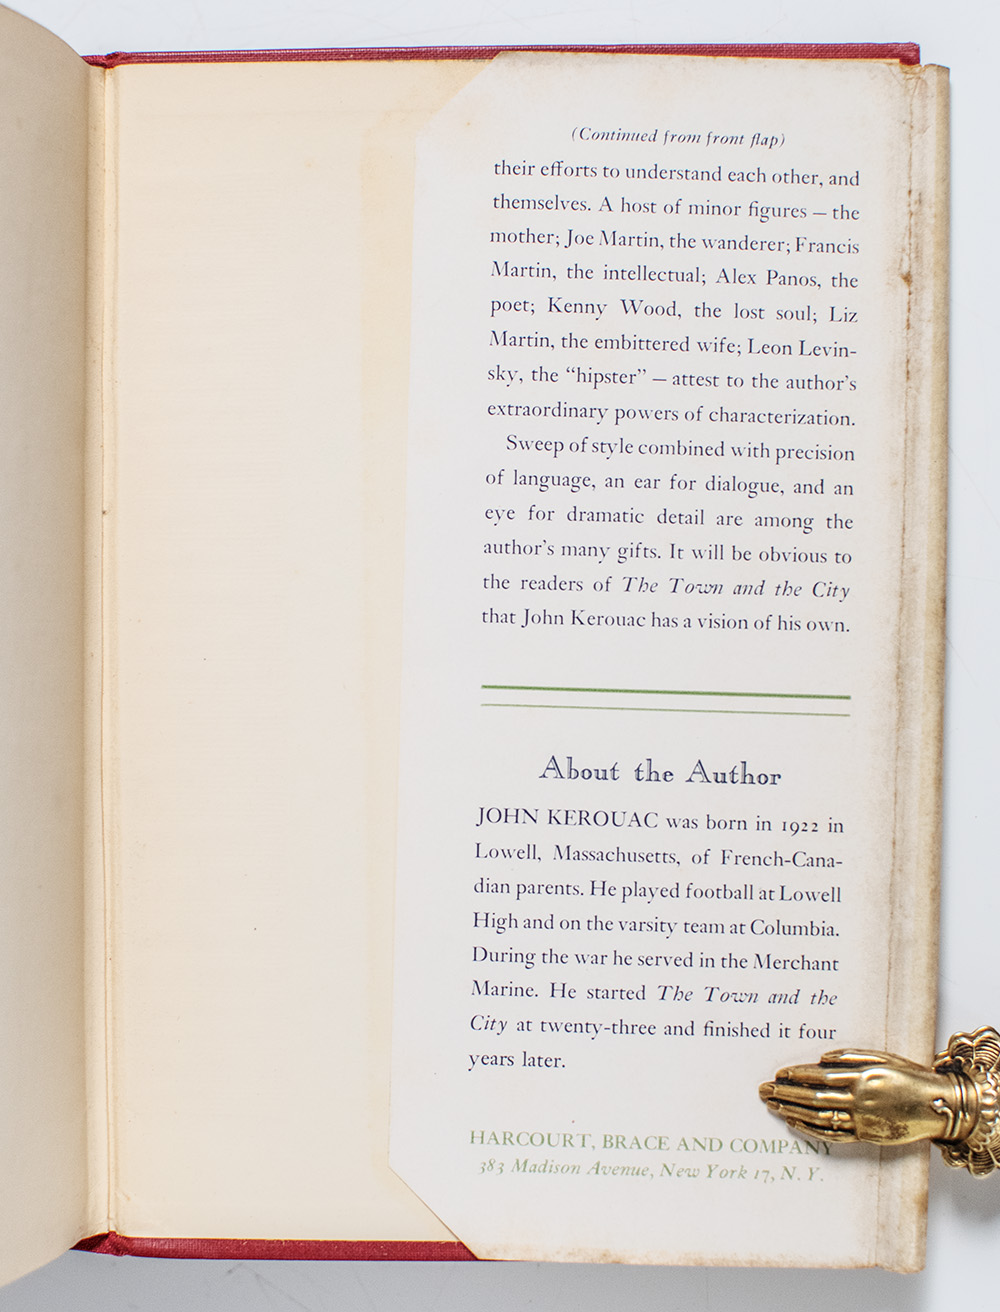 (Continued from front flap)
their efforts to understand each other, and
themselves. A host of minor figures — the
mother; Joe Martin, the wanderer; Francis
Martin, the intellectual; Alex Panos, the
poet; Kenny Wood, the lost soul; Liz
Martin, the embittered wife; Leon Levin-
sky, the “hipster” — attest to the author’s
extraordinary powers of characterization.
Sweep of style combined with precision
of language, an ear for dialogue, and an
eye for dramatic detail are among the
author’s many gifts. It will be obvious to
the readers of The Town and the City
that John Kerouac has a vision of his own.
About the Author
JOHN KEROUAC was born in 1922 in
Lowell, Massachusetts, of French-Cana-
dian parents. He played football at Lowell
High and on the varsity team at Columbia.
During the war he served in the Merchant
Marine. He started The Town and the
City at twenty-three and finished it four
years later.
HARCOURT, BRACE AND COMPANY
383 Madison Avenue, New York 17, N. Y.